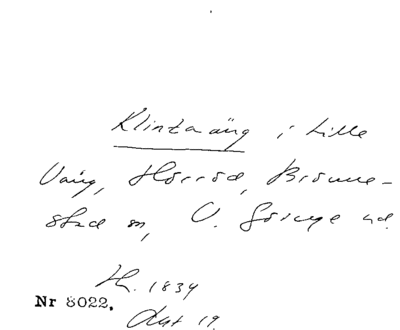 Klintaäng i Lille
Vång, Hörröd, Brönne-
stad sn, V. Göinge hd.
H. 1834
Nr 8022.
Akt 19.